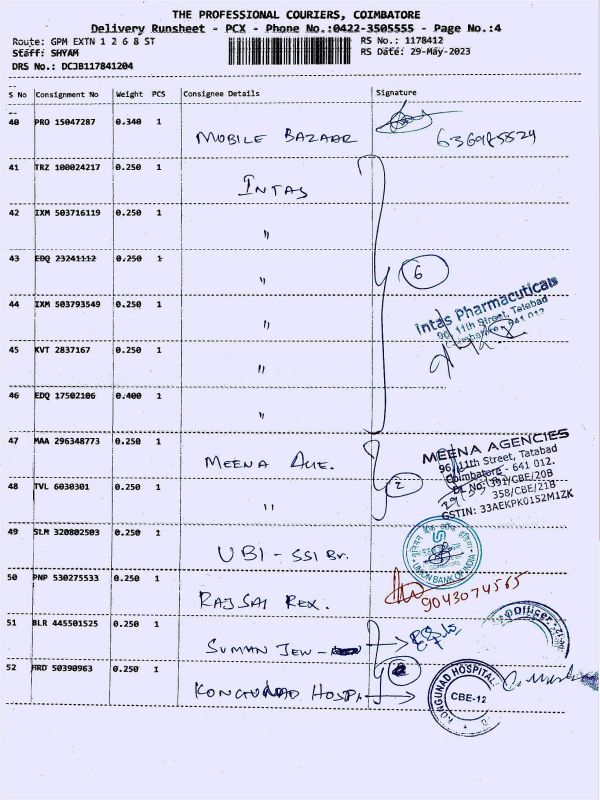 THE PROFESSIONAL COURIERS, COIMBATORE
Delivery Runsheet - PCX - Phone No.:0422-3505555 - Page No.:4
Route: GPM EXTN 1 2 6 8 ST RS No.: 1178412
Staff: SHYAM RS Date: 29-May-2023
DRS No.: DCJB117841204
S No Consignment No Weight PCS Consignee Details Signature
40 PRO 15047287 0.340 1 MOBILE BAZAAR
41 TRZ 100024217 0.250 1 INTAS
42 IXM 503716119 0.250 1 "
43 EDQ 23241112 0.250 1 "
6
44 IXM 503793549 0.250 1 "
Intas Pharmaceuticals
90, 11th Street, Tatabad
641 012
45 KVT 2837167 0.250 1 "
46 EDQ 17502106 0.400 1 "
47 MAA 296348773 0.250 1 MEENA AGE.
MEENA AGENCIES
96, 11th Street, Tatabad
Coimbatore - 641 012.
DL No: 391/CBE/20B
358/CBE/21B
GSTIN: 33AEKPK0152M1ZK
48 TVL 6030301 0.250 1 " 2
49 SLM 320802503 0.250 1 UBI - SSI Br.
UNION BANK OF INDIA
50 PNP 530275533 0.250 1 RAJSAI REX. 9043074565
51 BLR 445501525 0.250 1 SUMAN JEW -
52 HRD 50390963 0.250 1 KONGUNAD HOSPI
KONGUNAD HOSPITAL
CBE-12